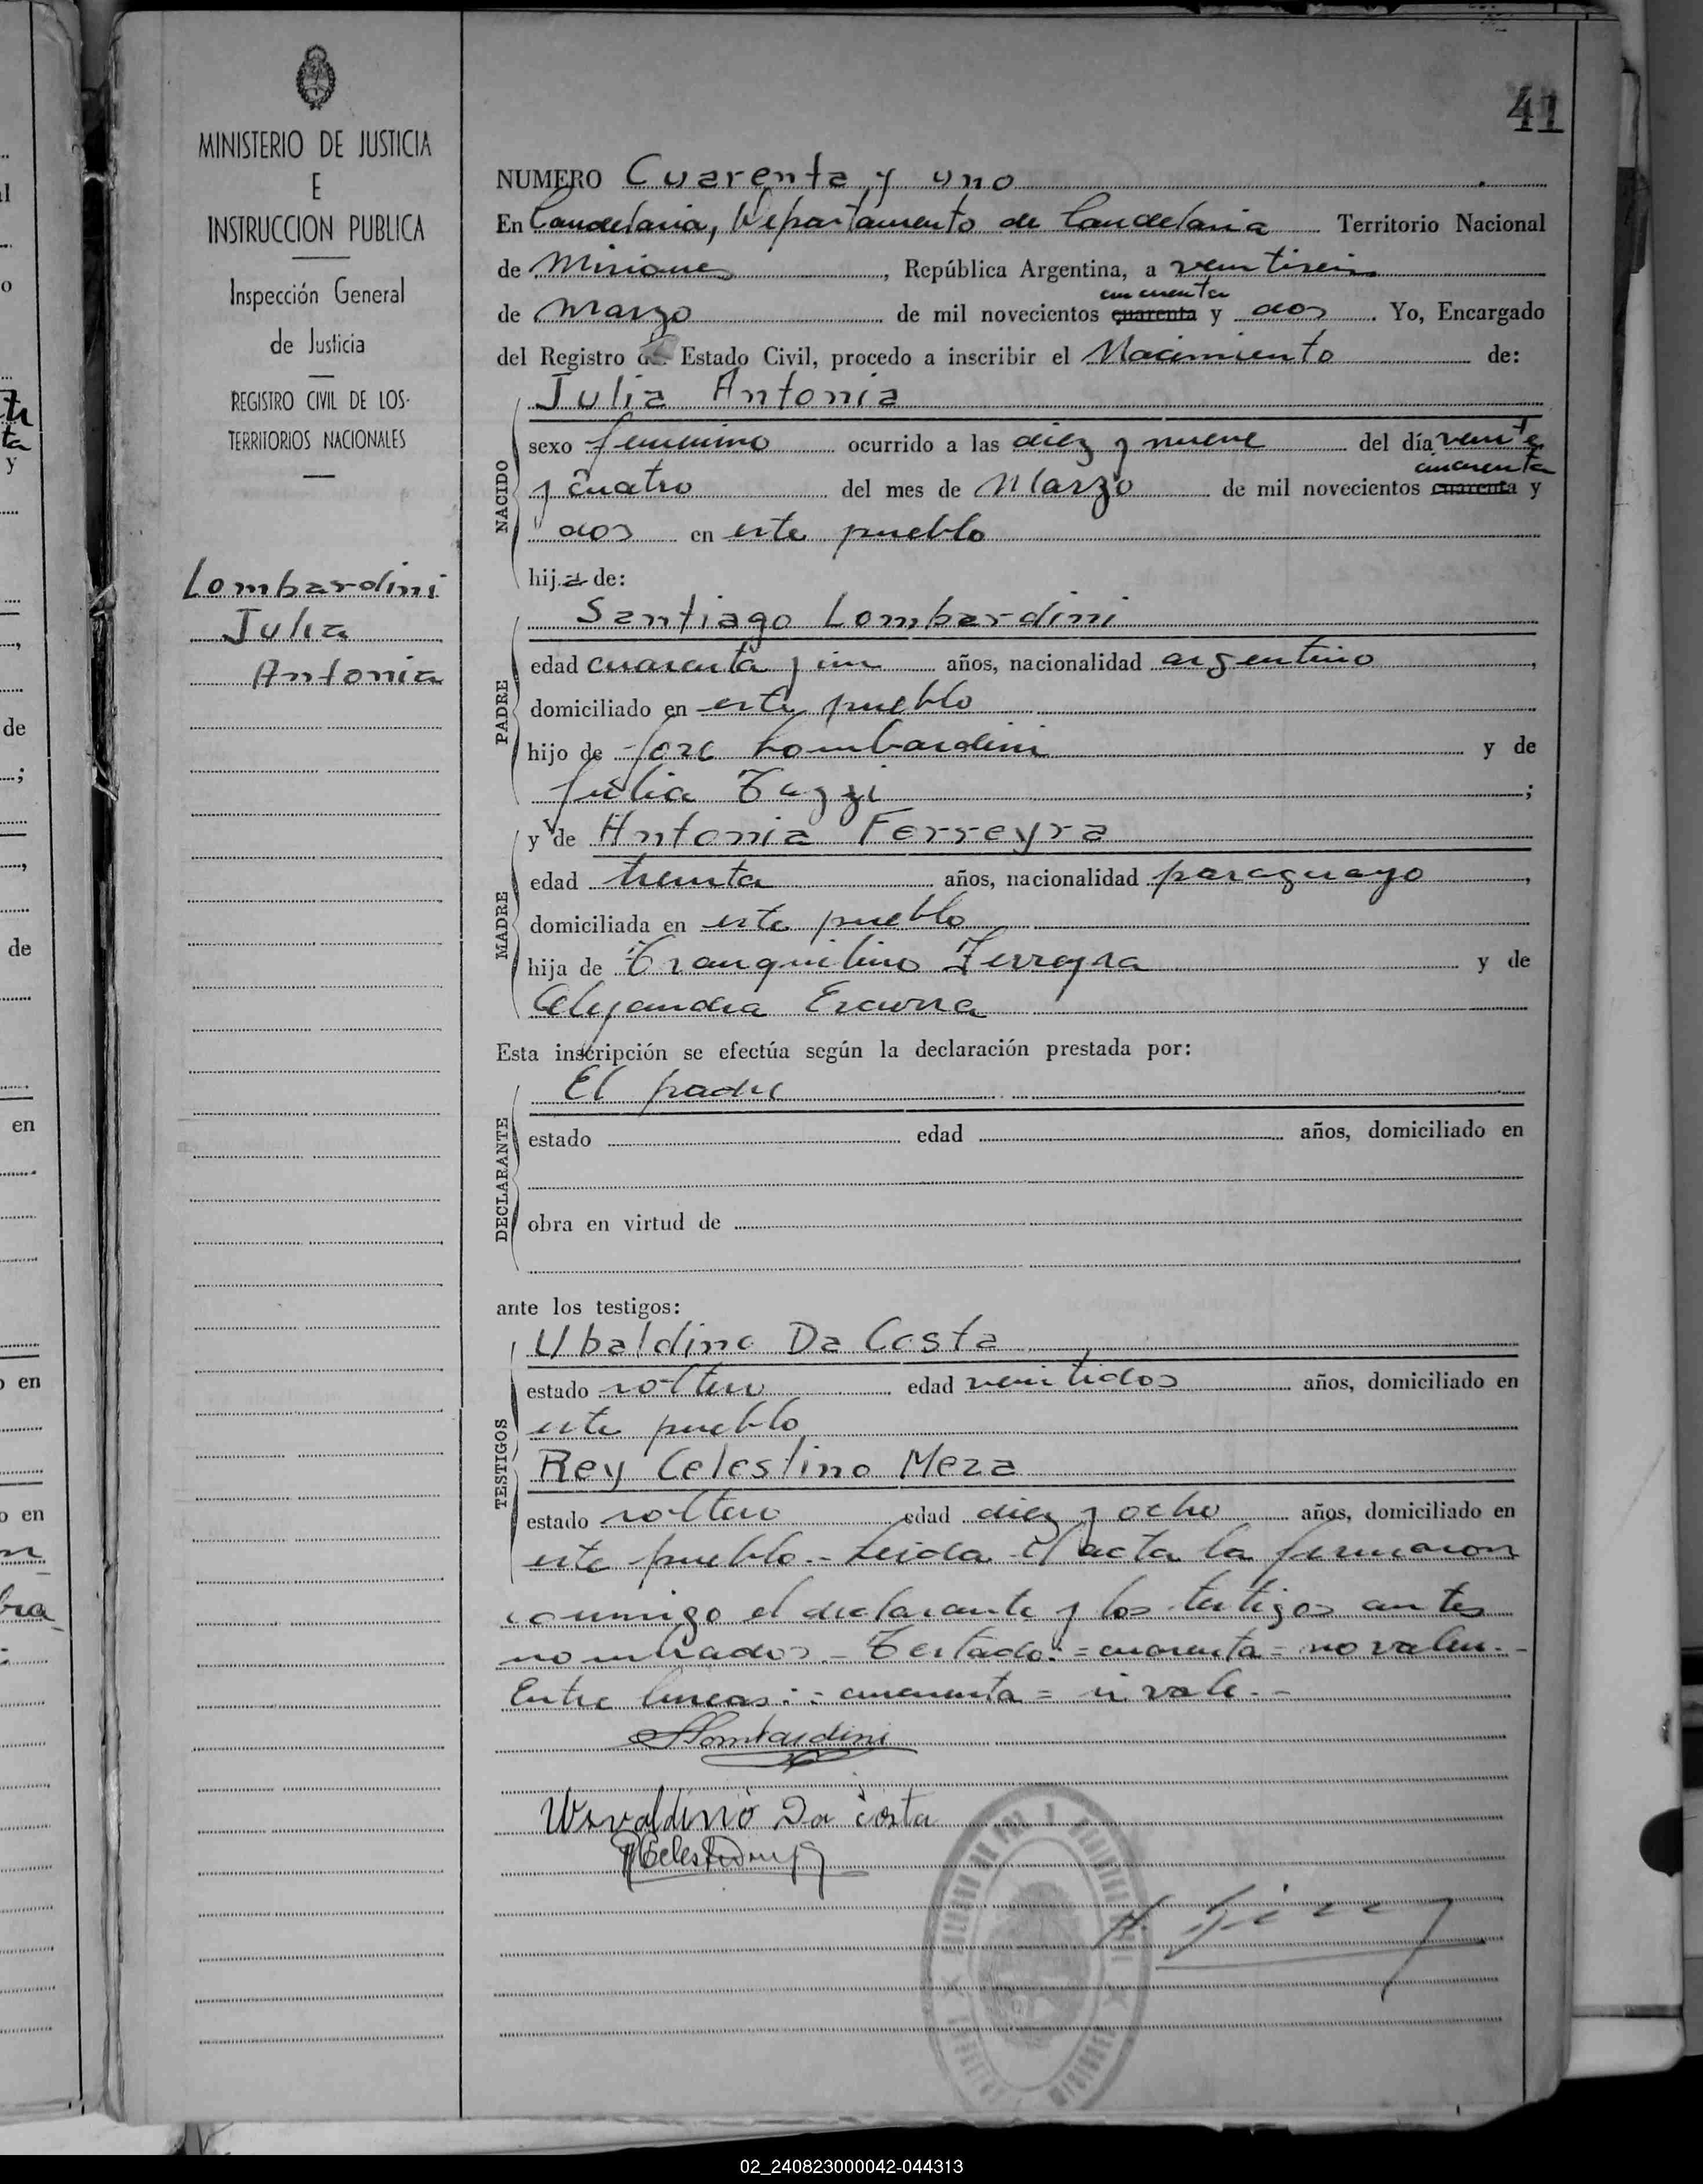 41
MINISTERIO DE JUSTICIA
E
INSTRUCCION PUBLICA
Inspección General
de Justicia
REGISTRO CIVIL DE LOS
TERRITORIOS NACIONALES
Lombardini
Julia
Antonia
NUMERO Cuarenta y uno
En Candelaria, Departamento de Candelaria Territorio Nacional
de Misiones, República Argentina, a ventiseis
cincuenta
de Marzo de mil novecientos cuarenta y dos. Yo, Encargado
del Registro de Estado Civil, procedo a inscribir el Nacimiento de:
NACIDO
Julia Antonia
sexo femenino ocurrido a las diez y nueve del día vente
cincuenta
y cuatro del mes de Marzo de mil novecientos cuarenta y
dos en este pueblo
hija de:
PADRE
Santiago Lombardini
edad cuarenta y un años, nacionalidad argentino,
domiciliado en este pueblo
hijo de José Lombardini y de
Julia Tazzi;
MADRE
y de Antonia Ferreyra
edad treinta años, nacionalidad paraguayo,
domiciliada en este pueblo
hija de Tranquilino Ferreyra y de
Alejandra
Esta inscripción se efectúa según la declaración prestada por:
DECLARANTE
El padre
estado edad años, domiciliado en
obra en virtud de
ante los testigos:
TESTIGOS
Ubaldino Da Costa
estado soltero edad ventidos años, domiciliado en
este pueblo
Rey Celestino Meza
estado soltero edad diez y ocho años, domiciliado en
este pueblo.- Leida el acta la firmaron
conmigo el declarante y los testigos antes
nombrados.- Testado: =cuarenta= no valen.-
Entre lineas: =cincuenta= si vale.-
SLombardini
Uvaldino Da Costa
02_240823000042-044313